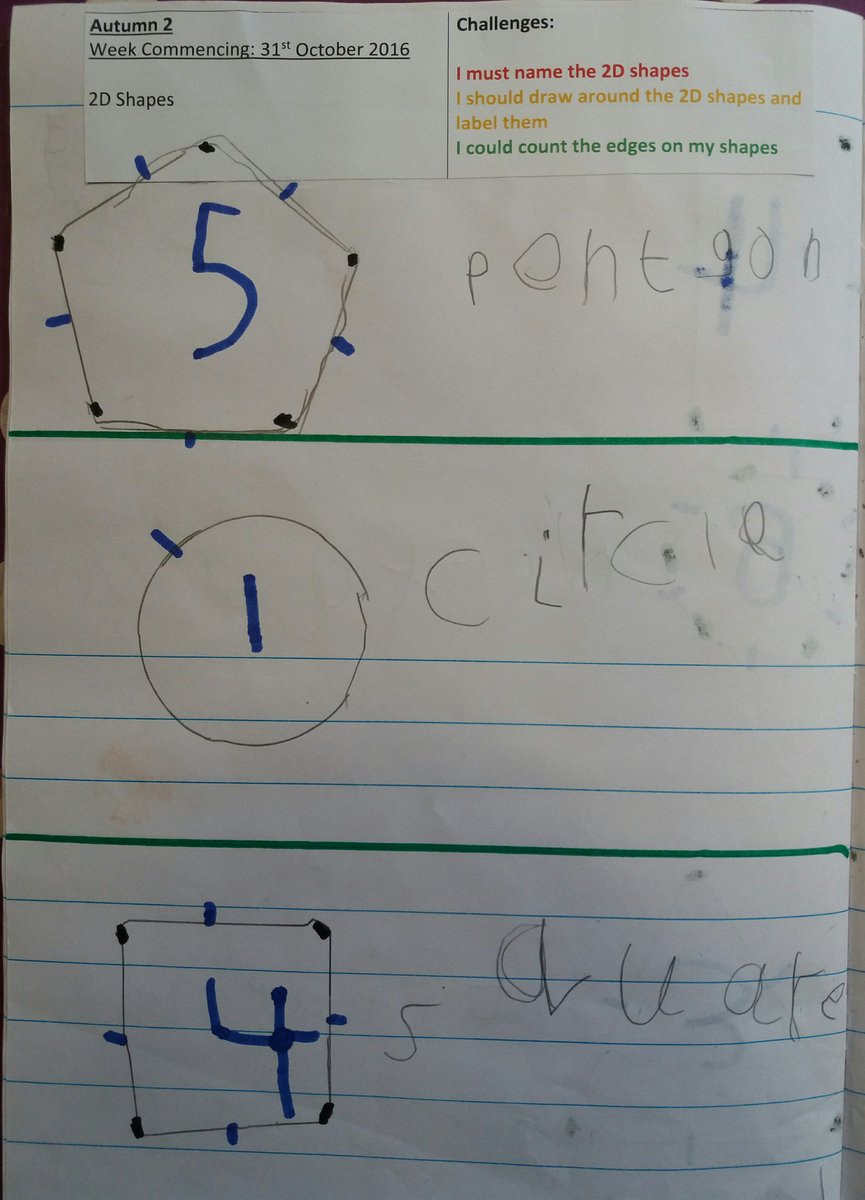 Autumn 2
Week Commencing: 31st October 2016
2D Shapes
Challenges:
I must name the 2D shapes
I should draw around the 2D shapes and
label them
I could count the edges on my shapes
5
pentgon
1
circle
4
square